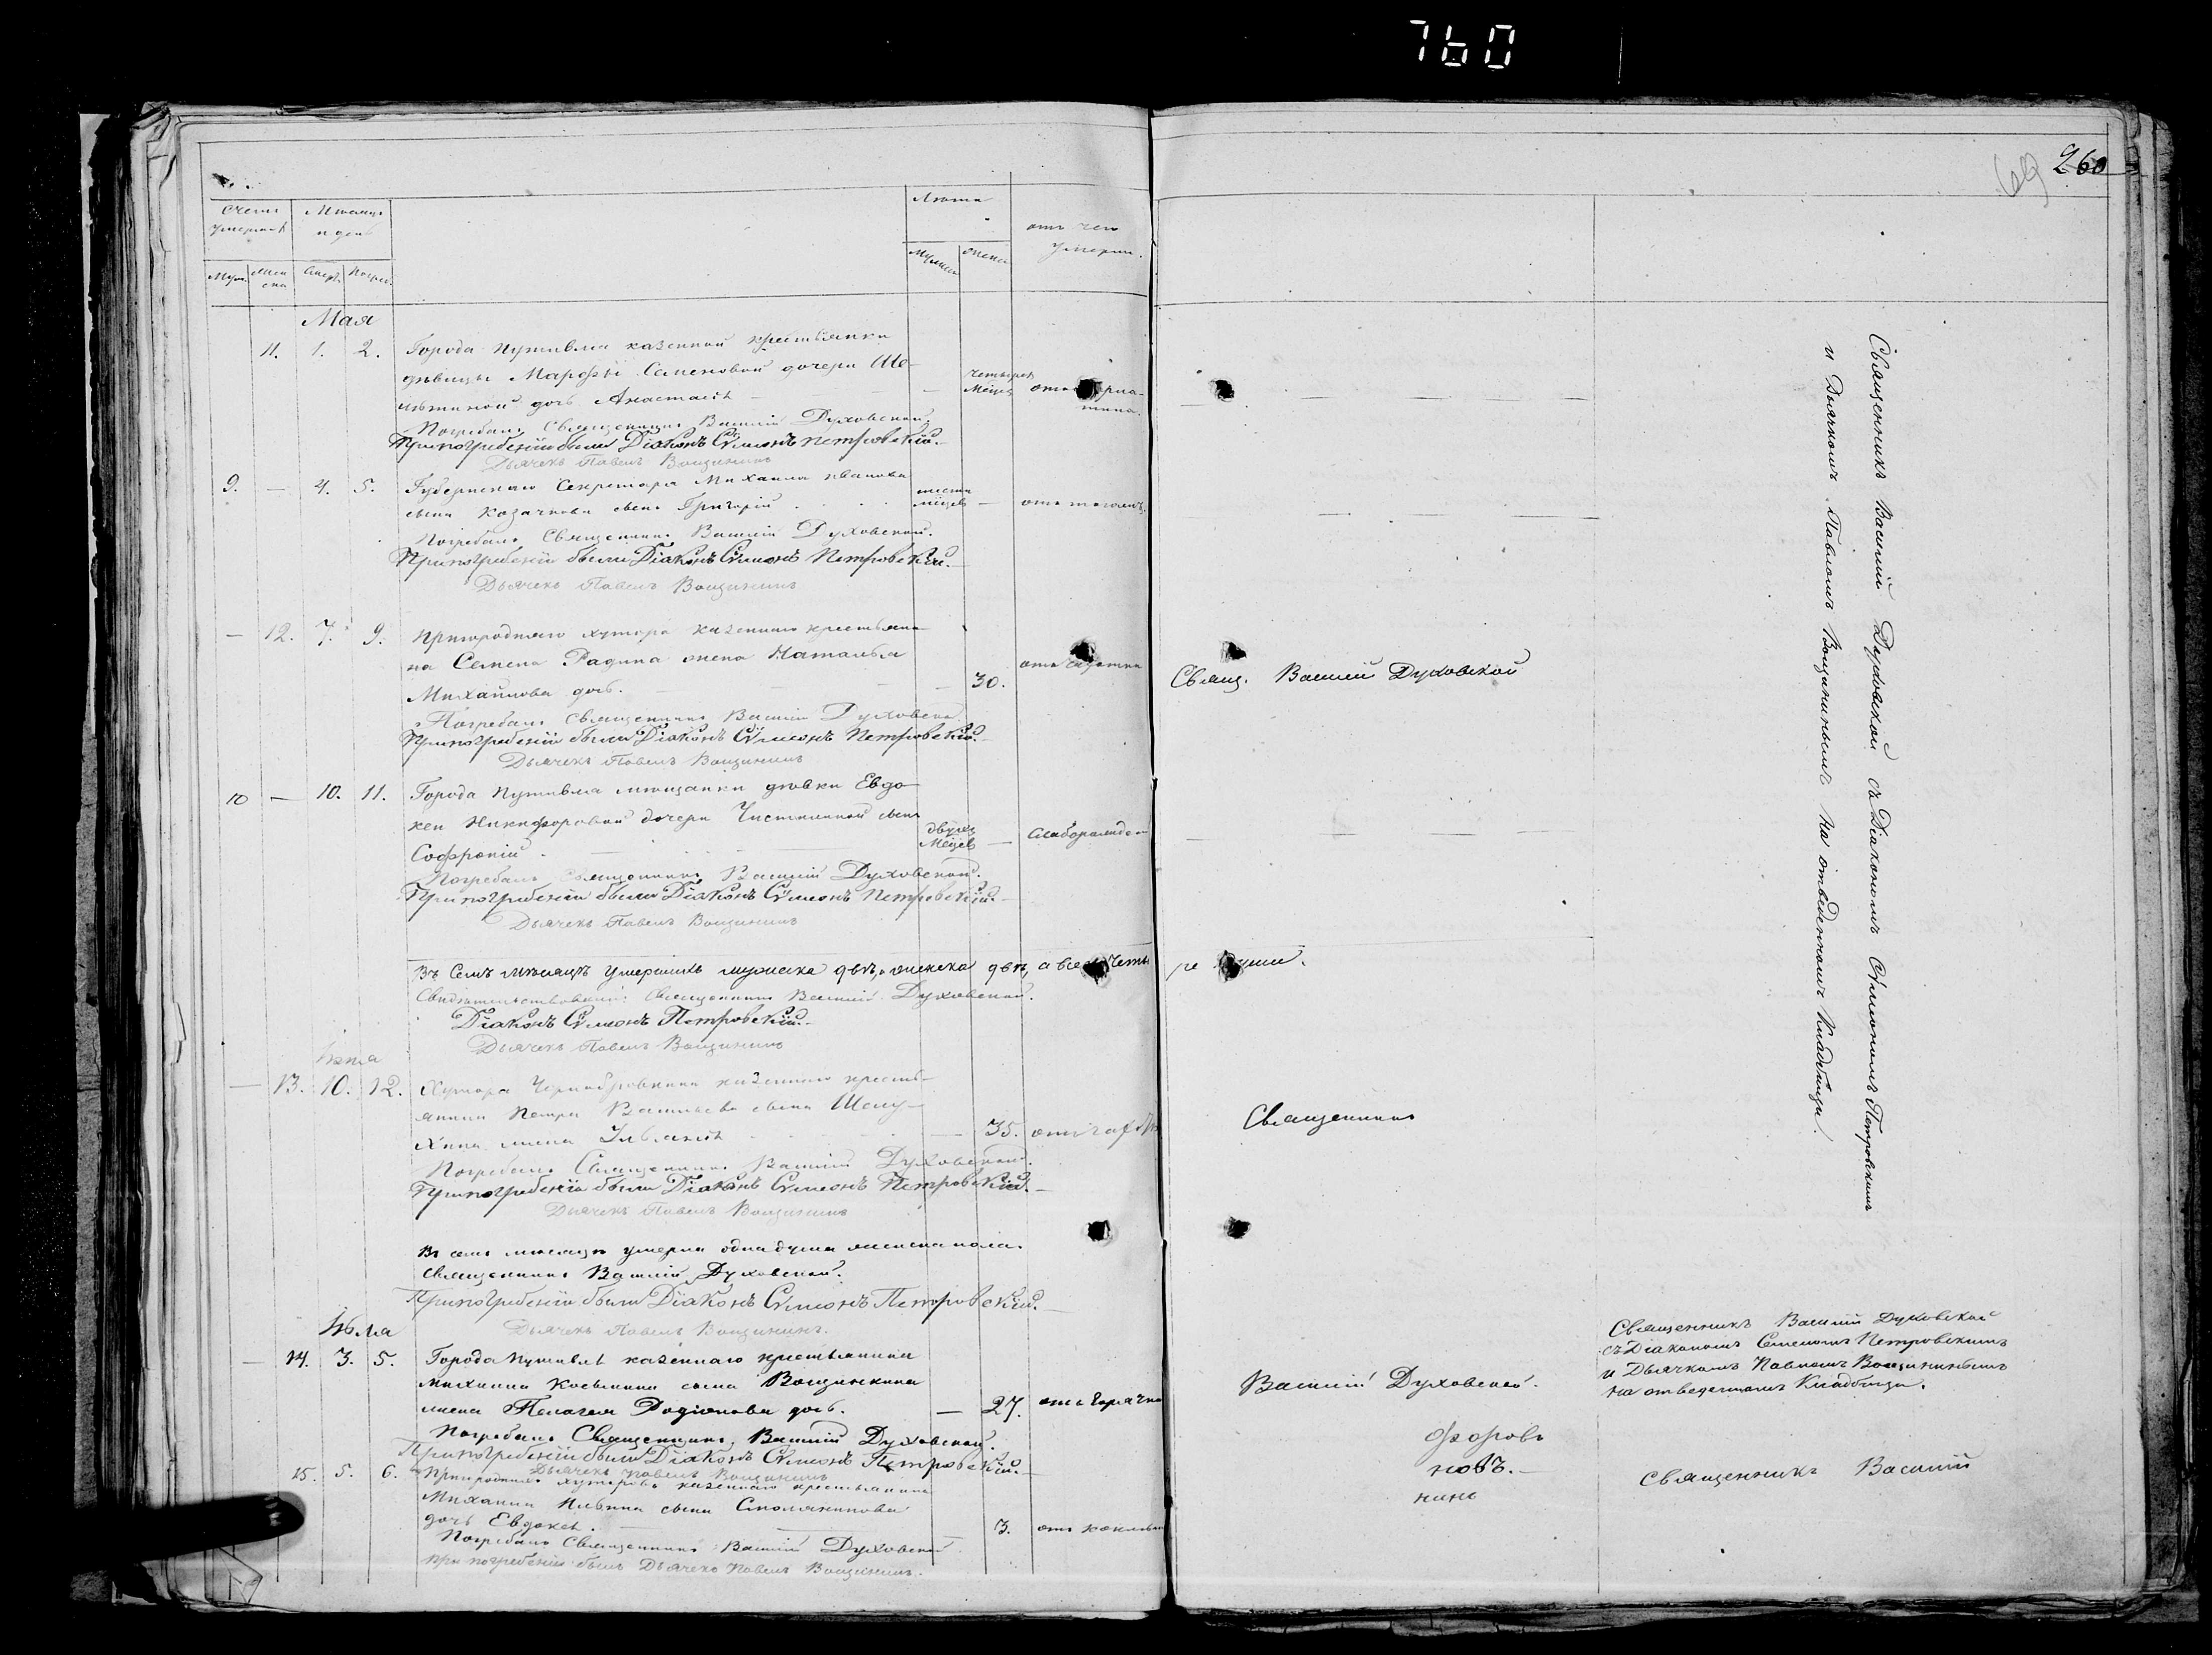 760
69 260
Счетъ умершихъ
Мѣсяцъ и день
Лѣта
отъ чего умерли.
Муж.
Жен ска
Смер.
Погреб.
Мужеска
Женск
Мая
11. 1. 2. Города Путивля казенной крестьянки
дѣвицы Марфы Семеновой дочери Ше-
дочь Анастасія — четырехъ Мѣцъ
Погребалъ Священникъ Василій Духовской
При погребеніи были Діаконъ Сѵмеонъ Петровскій.
Дьячекъ Павелъ Вощининъ
9. — 4. 5. Губернскаго Секретаря Михаила Иванова
сына Козачкова сынъ Григорій шести мѣцевъ —
Погребалъ Священникъ Василій Духовской.
При погребеніи были Діаконъ Сѵмеонъ Петровскій.
Дьячекъ Павелъ Вощининъ
— 12. 7. 9. Пригороднаго хутора казеннаго крестьяни-
на Семена Радина жена Наталья
Михайлова дочь. — 30.
Погребалъ Священникъ Василій Духовской
При погребеніи были Діаконъ Сѵмеонъ Петровскій.
Дьячекъ Павелъ Вощининъ
10 — 10. 11. Города Путивля мѣщанки дѣвки Евдо-
кеи Никифоровой дочери сынъ
Софроній. двухъ Мѣцевъ —
Погребалъ Священникъ Василій Духовской.
При погребеніи были Діаконъ Сѵмеонъ Петровскій.
Дьячекъ Павелъ Вощининъ
Въ Семъ мѣсяцѣ умершихъ мужеска двѣ, женска двѣ, а всего четы ре души.
Свидѣтельствовали: Священникъ Василій Духовской.
Діаконъ Сѵмеонъ Петровскій.
Дьячекъ Павелъ Вощининъ
— 13. 10. 12. Хутора казеннаго кресть-
янина Петра Васильева сына Шелу-
хина жена — 35.
Погребалъ Священникъ Василій Духовской.
При погребеніи были Діаконъ Сѵмеонъ Петровскій.
Дьячекъ Павелъ Вощининъ
Въ семъ мѣсяцѣ умерла одна душа женска пола.
Священникъ Василій Духовской.
При погребеніи были Діаконъ Сѵмеонъ Петровскій.
Дьячекъ Павелъ Вощининъ.
Іюля
— 14. 3. 5. Города Путивля казеннаго крестьянина
Михаила Косьмина сына Вощинкина
жена Пелагея Родіонова дочь. — 27. отъ горячки
Погребалъ Священникъ Василій Духовской.
При погребеніи были Діаконъ Сѵмеонъ Петровскій.
Дьячекъ Павелъ Вощининъ
15. 5. 6. казеннаго крестьянина
Михаила Ильина сына Смолянинова
дочь Евдокея. — 3.
Погребалъ Священникъ Василій Духовской
При погребеніи былъ Дьячекъ Павелъ Вощининъ.
Свящ. Василій Духовской
Священникъ
Василій Духовской.
новъ.
нинъ
Священникъ Василій Духовской съ Діакономъ Сѵмеономъ Петровскимъ
и Дьячкомъ Павломъ Вощининымъ на отведенномъ Кладбищи.
Священникъ Василій Духовской
съ Діакономъ Семеномъ Петровскимъ
и Дьячкомъ Павломъ Вощининымъ
на отведенномъ Кладбищи.
Священникъ Василій